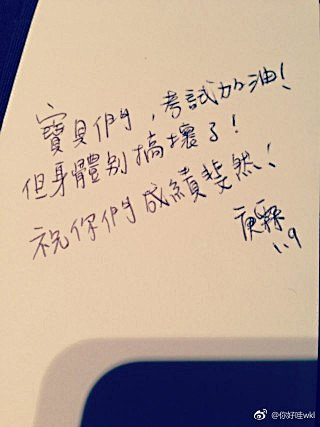 寶貝們，考試加油！
但身體别搞壞了！
祝你們成績斐然！
庾霖
1.9
@你好哇wkl